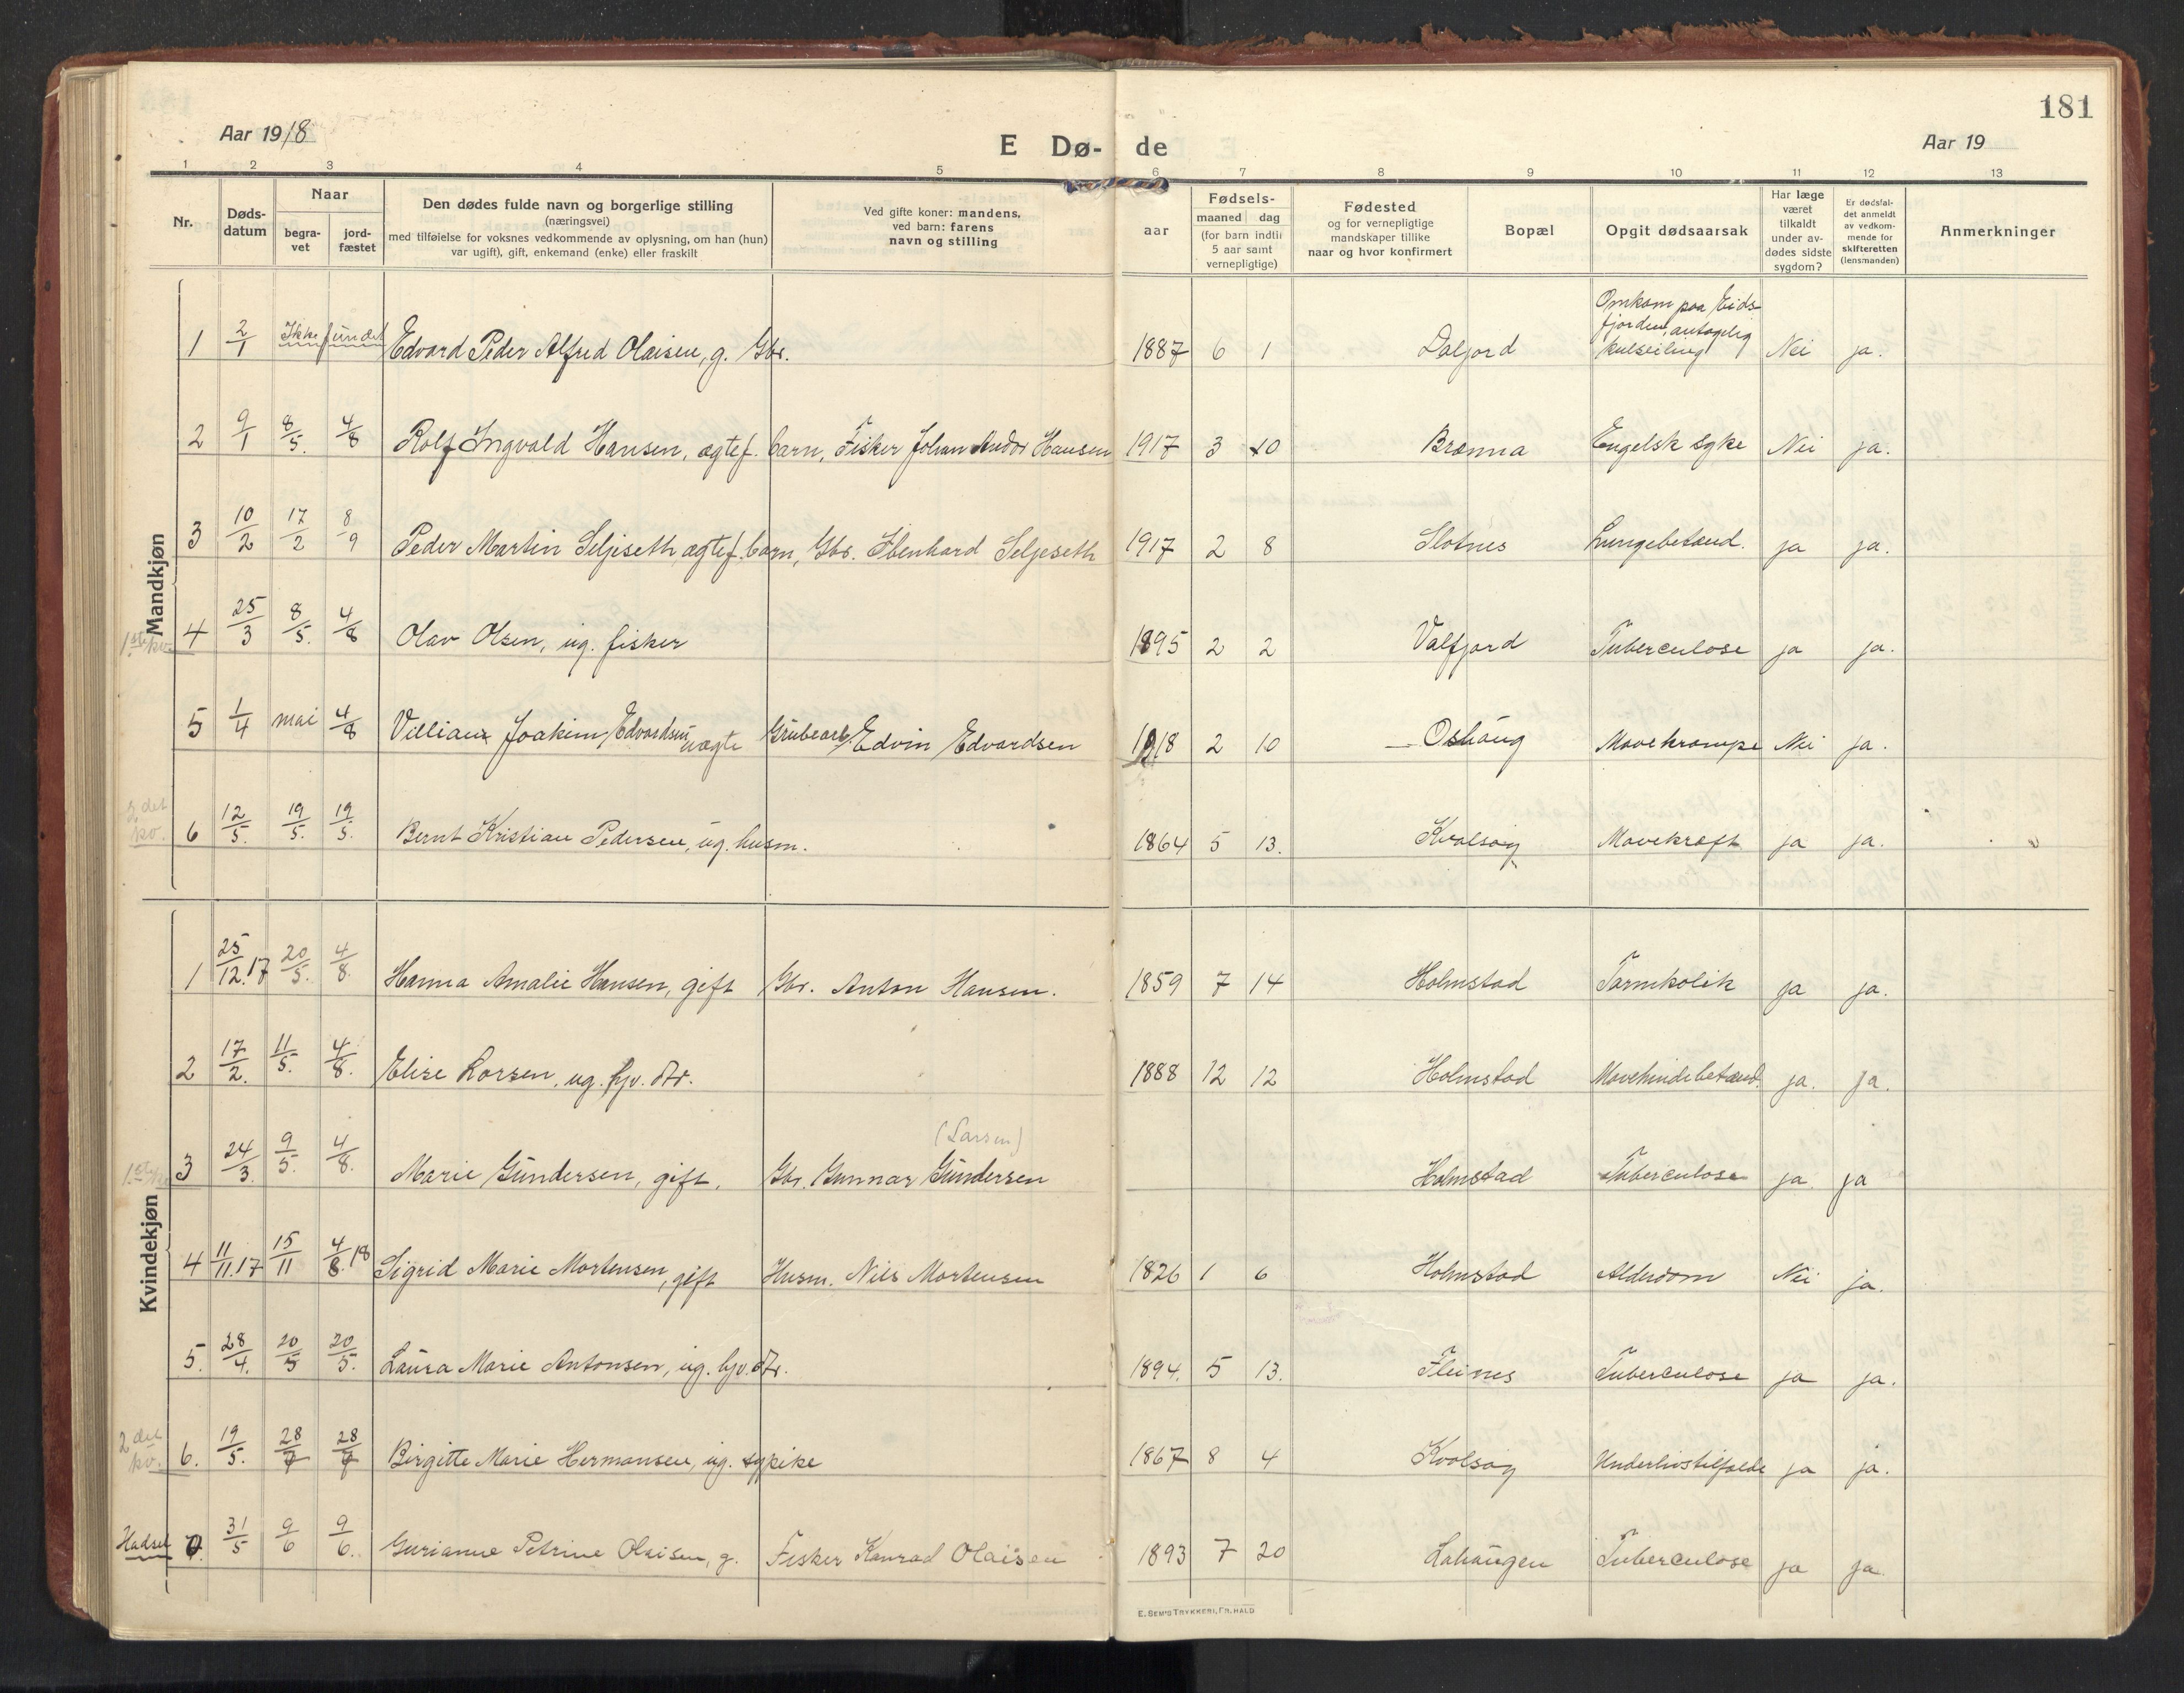 181
Aar 1918
E Dø- de
Aar 19
1 2 3 4 5 6 7 8 9 10 11 12 13
Nr.
Døds-
datum
Naar
begra-
vet
jord-
fæstet
Den dødes fulde navn og borgerlige stilling
(næringsvei)
med tilføielse for voksnes vedkommende av oplysning, om han (hun)
var ugift), gift, enkemand (enke) eller fraskilt
Ved gifte koner: mandens,
ved barn: farens
navn og stilling
aar
Fødsels-
maaned dag
(for barn indtil
5 aar samt
vernepligtige)
Fødested
og for vernepligtige
mandskaper tillike
naar og hvor konfirmert
Bopæl
Opgit dødsaarsak
Har læge
været
tilkaldt
under av-
dødes sidste
sygdom?
Er dødsfal-
det anmeldt
av vedkom-
mende for
skifteretten
(lensmanden)
Anmerkninger
Mandkjøn
1 2/1 Ikke fundet Edvard Peder Alfred Olaisen, g. Gbr. 1887 6 1 Dalfjord Omkom paa Eids-
fjorden, antagelig
kulseiling Nei ja.
2 9/1 8/5. 4/8 Rolf Ingvald Hansen, ægtef. barn, Fisker Johan Andor Hansen 1917 3 10 Brenna Engelsk syke Nei ja.
3 10/2 17/2 8/9 Peder Martin Seljeseth, ægtef. barn, Gbr. Ebenhard Seljeseth 1917 2 8 Slotnes Lungebetænd. ja ja.
1ste kv. 4 25/3 8/5. 4/8 Olav Olsen, ug. fisker 1895 2 2 Valfjord Tuberculose ja ja.
5 1/4 mai 4/8 Villiam Joakim Edvardsen uægte Grubearb. Edvin Edvardsen 1918 2 10 Oshaug Mavekrampe Nei ja.
2det kv. 6 12/5. 19/5. 19/5. Bernt Kristian Pedersen, ug. husm. 1864 5 13. Kvalsøy Mavekræft ja ja.
Kvindekjøn
1 25/12.17 20/5. 4/8. Hanna Amalie Hansen, gift Gbr. Anton Hansen. 1859 7 14 Holmstad Tarmkolik ja ja.
2 17/2. 11/5. 4/8. Elise Larsen, ug. hjv. dtr. 1888 12 12 Holmstad Mavehindebetænd. ja. ja.
(Larsen)
1ste kv. 3 24/3. 9/5. 4/8. Marie Gundersen, gift. Gbr. Gunnar Gundersen Holmstad Tuberculose ja. ja
4 11/11.17 15/11 4/8.18 Sigrid Marie Mortensen, gift Husm. Nils Mortensen 1826 1 6 Holmstad Alderdom Nei ja.
5. 28/4. 20/5 20/5. Laura Marie Antonsen, ug. hjv. dtr. 1894. 5 13. Fleines Tuberculose ja ja.
2det kv. 6. 19/5. 28/7 28/7 Birgitte Marie Hermansen, ug. sypike 1867 8 4 Kvalsøy Underlivstilfælde ja ja.
Hadsel 31/5 9/6 9/6. Gurianne Petrine Olaisen, g. Fisker Konrad Olaisen 1893 7 20 Lahaugen Tuberculose ja ja.
E. SEM'S TRYKKERI, FR. HALD